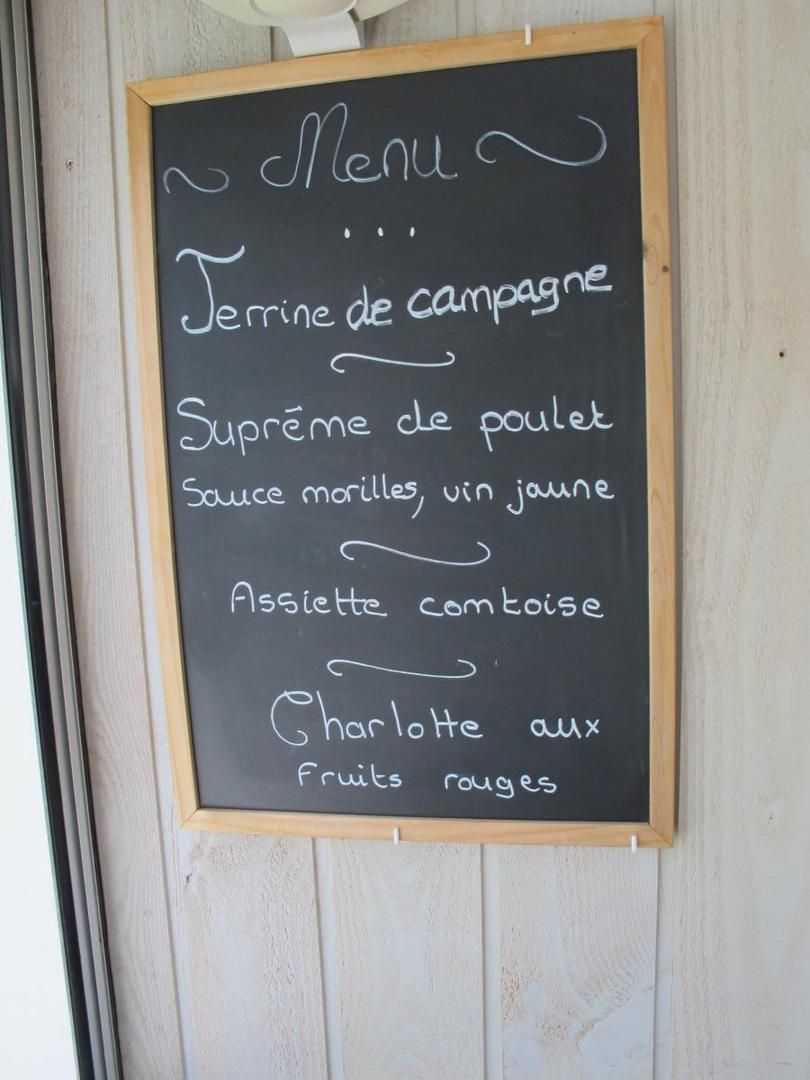 Menu
...
Terrine de campagne
Suprême de poulet
Sauce morilles, vin jaune
Assiette comtoise
Charlotte aux
Fruits rouges